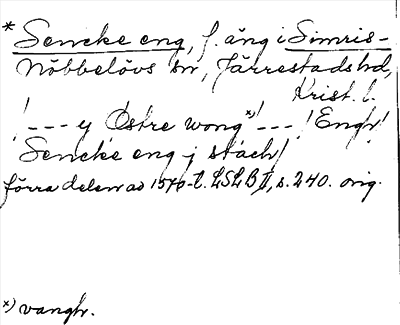 * Sencke eng, f. äng i Simris-
Nöbbelövs sn, Järrestads hd,
Krist. l.
! --- y Østre wong x) --- ! Engh!
Sencke eng j stách!
förra delen av 1570-t. LSLB II, s. 240. orig.
x) vangh.